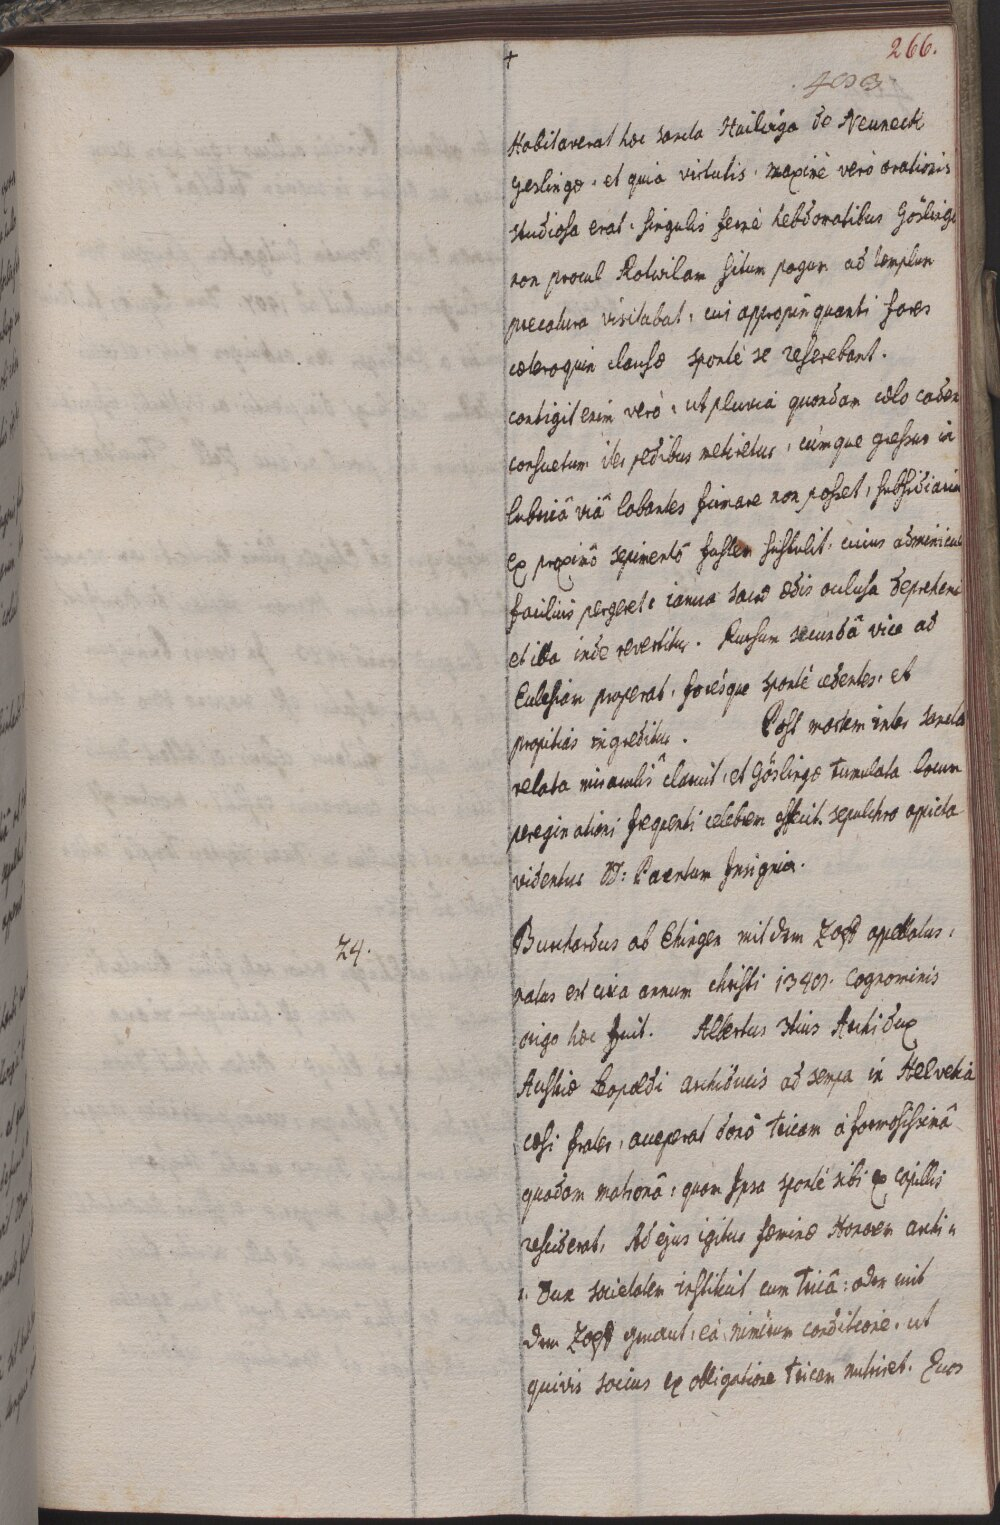 266.
403
+
Habitaverat hæc sancta Hailwiga de Neuneck
Geslingæ, et quia virtutis, maximè verò orationis
studiosa erat, singulis ferè hebdomatibus Göslinge
non procul Rotwilam situm pagum ad templum
precatura visitabat, cui appropinquanti fores
cæteroquin clausæ spontè se reserebant.
contigit enim verò, ut pluvia quondam cœlo caden
consuetum iter pedibus metiretur, cùmque gressus in
lubricâ viâ labantes firmare non posset, subsidiarium
ex proximô sepimentô fustem sustulit, cuius adminicul
faciliùs pergeret: ianua sacræ ædis oclusa deprehend
et illa inde revertitur. Rursum secundâ vice ad
Eclesiam properat, forésque spontè cedentes, et
propitias ingreditur. Post mortem inter sancta
relata miraculis claruit, et Göslingæ tumulata locum
peregrinationi frequenti celebrem effecit. sepulchro appicta
videntur DD: Parentum Insignia.
24.
Burckardus ab Ehingen mit dem Zopf appellatus,
natus est circa annum christi 1340. Cognominis
origo hæc fuit. Albertus Archidux
Austriæ Leopoldi archiducis ad sempa in Helvetia
cæsi frater, acceperat donô tricam à formosissimâ
quadam matronâ, quam Ipsa spontè sibi ex capillis
resciderat, Ad ejus igitur fœminæ Honorem archi=
=dux societatem instituit cum tricâ: oder mit
dem Zopf genant, eâ nimirum conditione, ut
quivis socius ex obligatione tricam nutriret. Quos